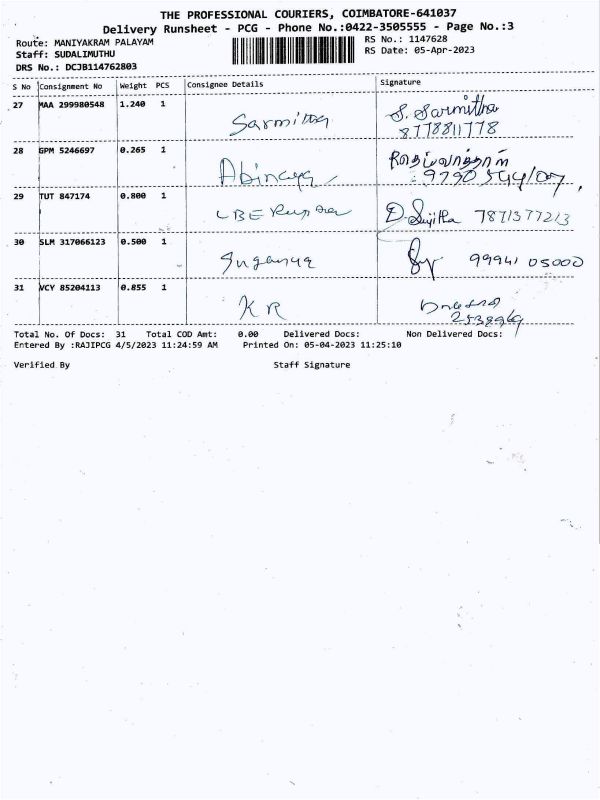 THE PROFESSIONAL COURIERS, COIMBATORE-641037
Delivery Runsheet - PCG - Phone No.:0422-3505555 - Page No.:3
Route: MANIYAKRAM PALAYAM
RS No.: 1147628
Staff: SUDALIMUTHU
RS Date: 05-Apr-2023
DRS No.: DCJB114762803
S No Consignment No Weight PCS Consignee Details Signature
27 MAA 299980548 1.240 1 Sarmitha S. Sarmitha
8778811778
28 GPM 5246697 0.265 1 Abinaya
29 TUT 847174 0.800 1 D. Sujitha 7871377213
30 SLM 317066123 0.500 1 Suganya 99941 05000
31 VCY 85204113 0.855 1 K R
Total No. Of Docs: 31 Total COD Amt: 0.00 Delivered Docs: Non Delivered Docs:
Entered By :RAJIPCG 4/5/2023 11:24:59 AM Printed On: 05-04-2023 11:25:10
Verified By Staff Signature